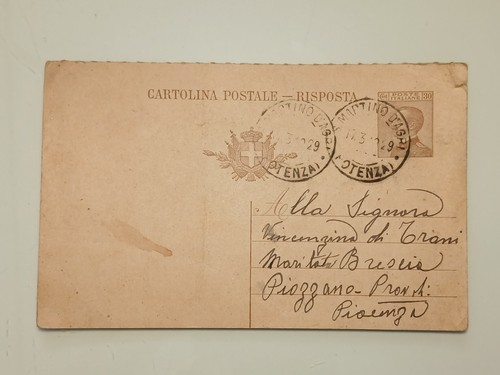 CARTOLINA POSTALE — RISPOSTA
POSTE ITALIANE 30
MARTINO D'AGRI 17.3.1929 (POTENZA)
MARTINO D'AGRI 17.3.1929 (POTENZA)
Alla Signora
Vincenzina di Trani
Maritata Brescia
Piozzano - Prov. di:
Piacenza